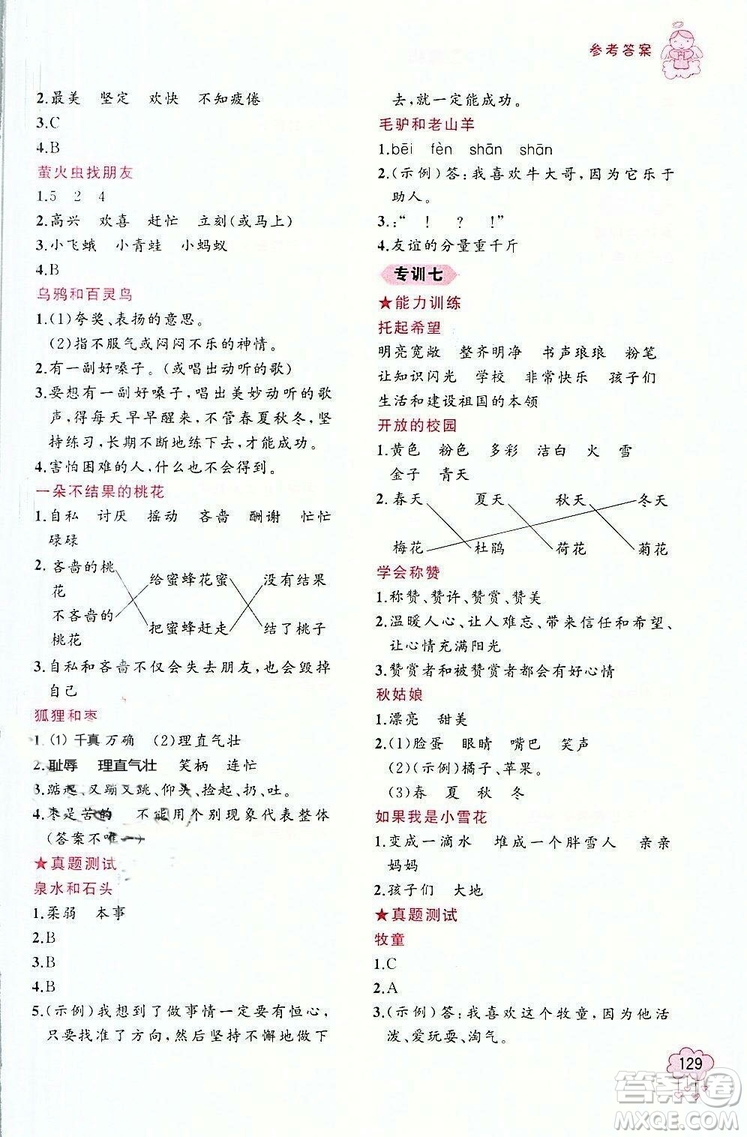 参考答案
2.最美 坚定 欢快 不知疲倦
3.C
4.B
萤火虫找朋友
1.5 2 4
2.高兴 欢喜 赶忙 立刻(或马上)
3.小飞蛾 小青蛙 小蚂蚁
4.B
乌鸦和百灵鸟
1.(1)夸奖、表扬的意思。
(2)指不服气或闷闷不乐的神情。
2.有一副好嗓子。(或唱出动听的歌)
3.要想有一副好嗓子，唱出美妙动听的歌
声，得每天早早醒来，不管春夏秋冬，坚
持练习，长期不断地练下去，才能成功。
4.害怕困难的人，什么也不会得到。
一朵不结果的桃花
1.自私 讨厌 摇动 吝啬 酬谢 忙忙
碌碌
2.吝啬的桃
花
给蜜蜂花蜜 没有结果
不吝啬的
桃花
把蜜蜂赶走 结了桃子
3.自私和吝啬不仅会失去朋友，也会毁掉
自己
狐狸和枣
1.(1)千真万确 (2)理直气壮
2.耻辱 理直气壮 笑柄 连忙
3.踮起、又蹦又跳、仰头、捡起、扔、吐。
4.枣是苦的 不能用个别现象代表整体
(答案不唯一)
★真题测试
泉水和石头
1.柔弱 本事
2.B
3.B
4.B
5.(示例)我想到了做事情一定要有恒心，
只要找准了方向，然后坚持不懈地做下
去，就一定能成功。
毛驴和老山羊
1.bēi fèn shān shān
2.(示例)答：我喜欢牛大哥，因为它乐于
助人。
3.：“ ！ ？ ！”
4.友谊的分量重千斤
专训七
★能力训练
托起希望
明亮宽敞 整齐明净 书声琅琅 粉笔
让知识闪光 学校 非常快乐 孩子们
生活和建设祖国的本领
开放的校园
1.黄色 粉色 多彩 洁白 火 雪
金子 青天
2.春天 夏天 秋天 冬天
梅花 杜鹃 荷花 菊花
学会称赞
1.称赞、赞许、赞赏、赞美
2.温暖人心、让人难忘、带来信任和希望、
让心情充满阳光
3.赞赏者和被赞赏者都会有好心情
秋姑娘
1.漂亮 甜美
2.(1)脸蛋 眼睛 嘴巴 笑声
(2)(示例)橘子、苹果。
(3)春 夏 秋 冬
如果我是小雪花
1.变成一滴水 堆成一个胖雪人 亲亲
妈妈
2.孩子们 大地
★真题测试
牧童
1.C
2.A
3.(示例)答：我喜欢这个牧童，因为他活
泼、爱玩耍、淘气。
129
答案圈
MXQE.COM